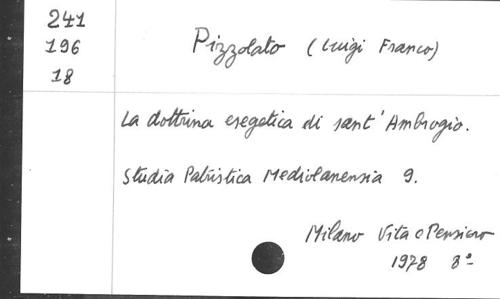 241
196
18
Pizzolato (Luigi Franco)
La dottrina esegetica di sant'Ambrogio.
Studia Patristica Mediolanensia 9.
Milano Vita e Pensiero
1978 8º